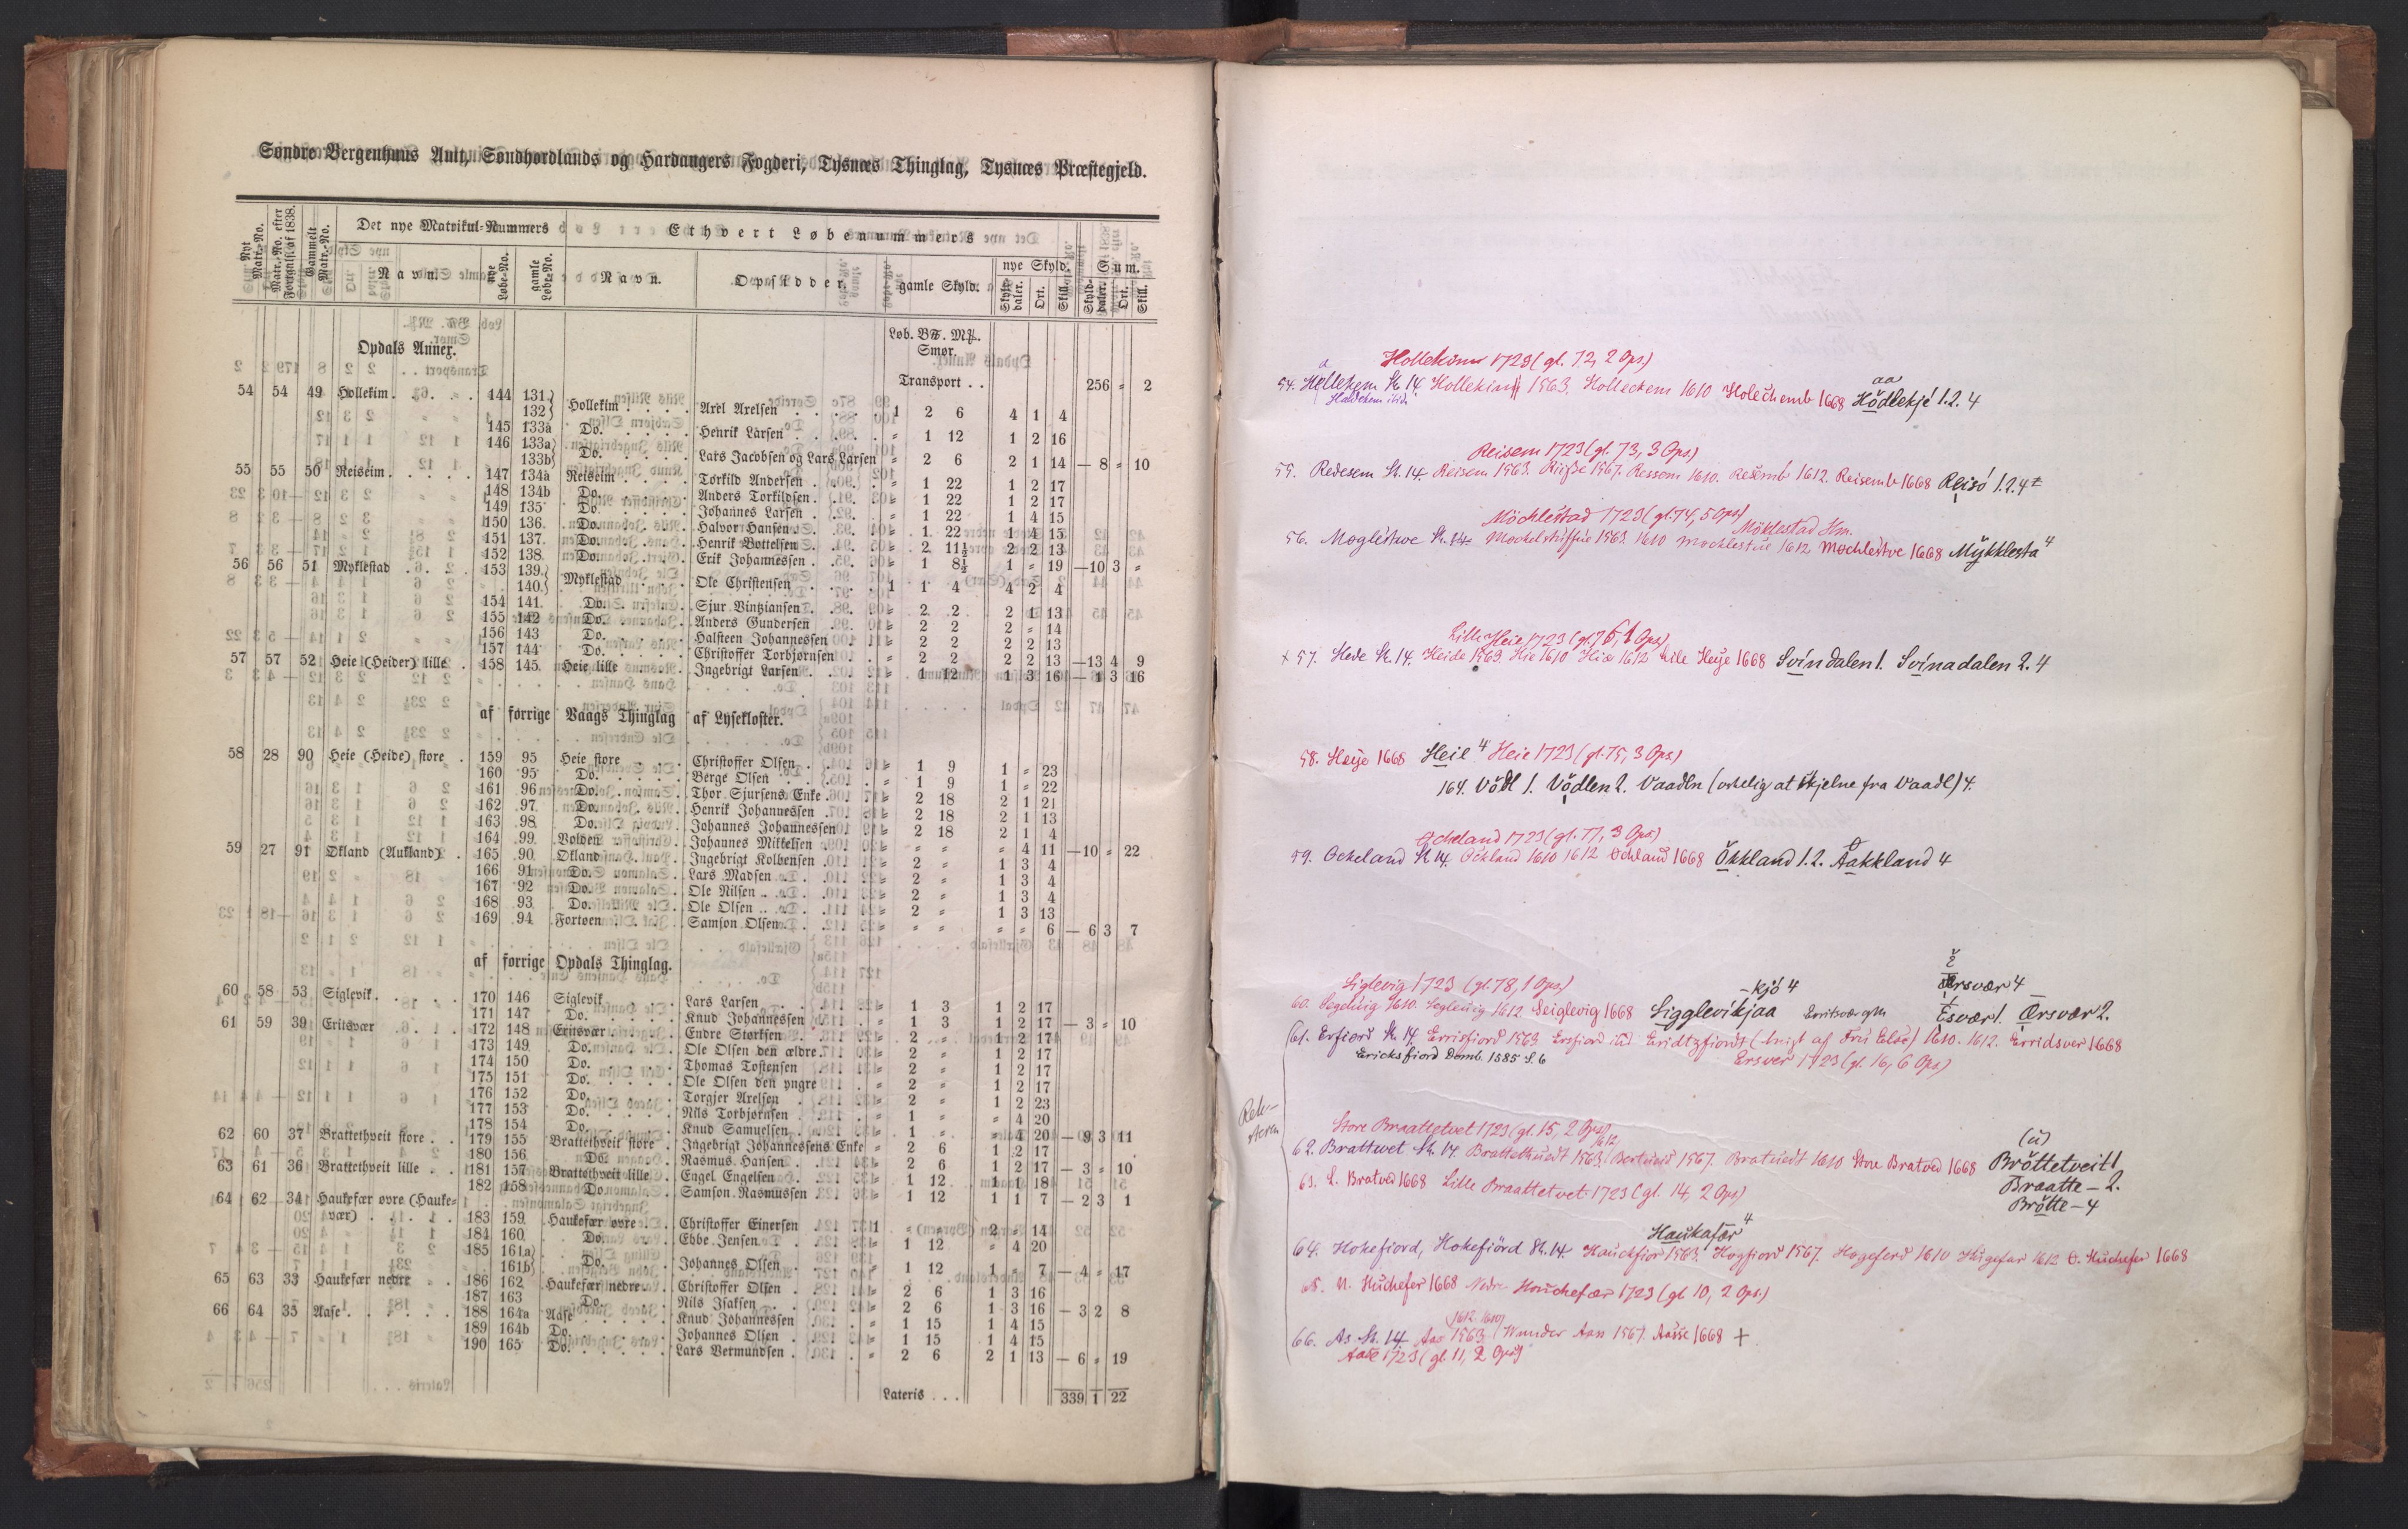 Søndre Bergenhuus Amt, Søndhordlands og Hardangers Fogderi, Tysnæs Thinglag, Tysnæs Præstegjeld.
Nyt Matr.-No. | Matr.-No. efter Forteguls. af 1838. | Gammelt Matr.-No. | Det nye Matrikul-Nummers | Ethvert Løbenummers
Navn. | nye Løbe-No. | gamle Løbe-No. | Navn. | Opsidder. | gamle Skyld. | nye Skyld. | Sum.
Skylddaler. | Ort. | Skill. | Skylddaler. | Ort. | Skill.
Løb. B℔. M℔.
Opdals Annex. Smør.
Transport . . 256 = 2
54 54 49 Hollekim . . . . 144 131
132 Hollekim . . . . Arel Arelsen . . . . 1 2 6 4 1 4
145 133a Do. . . . . Henrik Larsen . . . . = 1 12 1 2 16
146 133a
133b Do. . . . . Lars Jacobsen og Lars Larsen = 2 6 2 1 14 — 8 = 10
55 55 50 Reiseim . . . . 147 134a Reiseim . . . . Torkild Andersen . . . = 1 22 1 2 17
148 134b Do. . . . . Anders Torkildsen . . . = 1 22 1 2 17
149 135 Do. . . . . Johannes Larsen . . . = 1 22 1 4 15
150 136 Do. . . . . Halvor Hansen . . . = 1 22 1 4 15
151 137 Do. . . . . Henrik Bottelsen . . . = 2 11½ 2 2 13
152 138 Do. . . . . Erik Johannessen . . . = 1 8½ 1 = 19 —10 3 =
56 56 51 Myklestad . . . 153 139
140 Myklestad . . . Ole Christensen . . . 1 1 4 4 2 4
154 141 Do. . . . . Sjur Vintziansen . . . = 2 2 2 1 13
155 142 Do. . . . . Anders Gundersen . . . = 2 2 2 = 14
156 143 Do. . . . . Halsteen Johannessen . . = 2 2 2 2 13
157 144 Do. . . . . Christoffer Torbjørnsen . . = 2 2 2 2 13 —13 4 9
57 57 52 Heie (Heider) lille . 158 145 Heie lille . . . Ingebrigt Larsen . . . = 1 12 1 3 16 — 1 3 16
af forrige Vaags Thinglag af Lysekloster.
58 28 90 Heie (Heide) store . 159 95 Heie store . . . Christoffer Olsen . . . = 1 9 1 = 23
160 95 Do. . . . . Berge Olsen . . . = 1 9 1 = 22
161 96 Do. . . . . Thor Sjursens Enke . . . = 2 18 2 1 21
162 97 Do. . . . . Henrik Johannessen . . . = 2 18 2 1 13
163 98 Do. . . . . Johannes Johannessen . . = 2 18 2 1 4
164 99 Volden . . . Johannes Mikkelsen . . = = = = 4 11 —10 = 22
59 27 91 Økland (Aukland) . 165 90 Økland . . . Ingebrigt Kolbensen . . = 2 = 1 3 4
166 91 Do. . . . . Lars Madsen . . . = 2 = 1 3 4
167 92 Do. . . . . Ole Nilsen . . . = 2 = 1 3 4
168 93 Do. . . . . Ole Olsen . . . = 2 = 1 3 13
169 94 Fortøen . . . Samson Olsen . . . = = = = = 6 — 6 3 7
af forrige Opdals Thinglag.
60 58 53 Siglevik . . . . 170 146 Siglevik . . . Lars Larsen . . . = 1 3 1 2 17
171 147 Do. . . . . Knud Johannessen . . . = 1 3 1 2 17 — 3 = 10
61 59 39 Eritsvær . . . 172 148 Eritsvær . . . Endre Størksen . . . = 2 = 1 2 17
173 149 Do. . . . . Ole Olsen den ældre . . = 2 = 1 2 17
174 150 Do. . . . . Thomas Tostensen . . = 2 = 1 2 17
175 151 Do. . . . . Ole Olsen den yngre . . = 2 = 1 2 17
176 152 Do. . . . . Torgjer Arelsen . . = 2 = 1 2 23
177 153 Do. . . . . Nils Torbjørnsen . . = 1 = = 4 20
178 154 Do. . . . . Knud Samuelsen . . = 1 = = 4 20 — 9 3 11
62 60 37 Brattethveit store . . 179 155 Brattethveit store . Ingebrigt Johannessens Enke = 2 6 1 2 17
180 156 Do. . . . . Rasmus Hansen . . = 2 6 1 2 17 — 3 = 10
63 61 36 Brattethveit lille . . 181 157 Brattethveit lille . Engel Engelsen . . = 1 12 1 1 18
182 158 Do. . . . . Samson Rasmussen . . = 1 12 1 1 7 — 2 3 1
64 62 34 Haukefær øvre (Haukevær) . . . 183 159 Haukefær øvre . . Christoffer Einersen . . 1 = = 2 = 14
184 160 Do. . . . . Ebbe Jensen . . . = 1 12 = 4 20
185 161a
161b Do. . . . . Johannes Olsen . . . = 1 12 1 = 7 — 4 = 17
65 63 33 Haukefær nedre . . 186 162 Haukefær nedre . . Christoffer Olsen . . = 2 6 1 3 16
187 163 Do. . . . . Nils Isaksen . . . = 2 6 1 3 16 — 3 2 8
66 64 35 Aase . . . . . 188 164a Aase . . . . Knud Johannessen . . = 1 15 1 4 15
189 164b Do. . . . . Johannes Olsen . . = 1 15 1 4 15
190 165 Do. . . . . Lars Vermundsen . . = 2 6 2 1 13 — 6 = 19
Lateris . . . 339 1 22
Hollekim 1723 (gl. 72, 2 Ops.)
54. Hollekem St. 14. Hollekiam 1563. Holleckem 1610 Holechemb 1668 Hödlekjé 1.2.4
aa
Reisem 1723 (gl. 73, 3 Ops.)
55. Redesem St. 14. Reisem 1563. 1567. Ressom 1610. Resemb 1612. Reisemb 1668 Reisó 1.2.4
Möchlestad 1723 (gl. 74, 5 Ops)
Möklestad Hm.
56. Moglestwe St. 14. 1563. 1610 Mochlestue 1612 Mochlestve 1668 Mÿkklesta 4
Lille Heie 1723 (gl. 76, 1 Ops.)
× 57. Hede St. 14. Heide 1563 Hie 1610 Hie 1612 Lile Heye 1668 Svindalen 1. Svinadalen 2.4
58. Heye 1668 Heie 4 Heie 1723 (gl. 75, 3 Ops.)
164. Vödl 1. Vödlen 2. Vaadln (uhelig at skjelne fra Vaadl) 4.
Ochland 1723 (gl. 77, 3 Ops.)
59. Ockeland St. 14. Ockland 1610 1612 Ochland 1668 Økkland 1.2. Aakkland 4
Siglevig 1723 (gl. 78, 1 Ops)
- kjó 4
Ersvær 4
60. Segleuig 1610. Segleuig 1612 Seiglevig 1668 Sigglevikjaa Erritsvær Esvær 1. Œrsvær 2.
61. Erfiord St. 14. Errisfiord 1563 Ersfiord ibd Eridtzfiordt (bugt af Fru Else) 1610. 1612. Erridsver 1668
Ericksfiord Domb. 1585 S. 6
Ersver 1723 (gl. 16, 6 Ops.)
Store Braattetvet 1723 (gl. 15, 2 Ops)
1612
(ú)
62. Brattwet St. 14. Brattethuedt 1563 1567. Bratuedt 1610 Store Bratved 1668 Bröttetveit 1
63. L. Bratved 1668 Lille Braattetvet 1723 (gl. 14, 2 Ops)
Braatte - 2.
Brötte - 4
Haukafær 4
64. Hokefiord, Hokefiörd St. 14. Hauckfior 1563. Hogfiord 1567. Hogeford 1610 Hugefar 1612 Ø. Huchefer 1668
65. N. Huchefer 1668 Nedre Houchefær 1723 (gl. 10, 2 Ops.)
1612 1610
66. As St. 14. Aas 1563 (Wunder Aas 1567. Aasse 1668 +
Aase 1723 (gl. 11, 2 Ops)